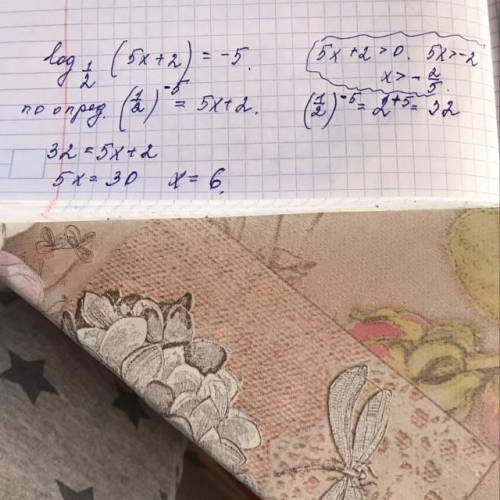 log 1/2 (5x+2) = -5.
5x+2>0. 5x>-2
x>-2/5.
по опред. (1/2)^-5 = 5x+2.
(1/2)^-5 = 2^+5 = 32
32 = 5x+2
5x = 30 x = 6.